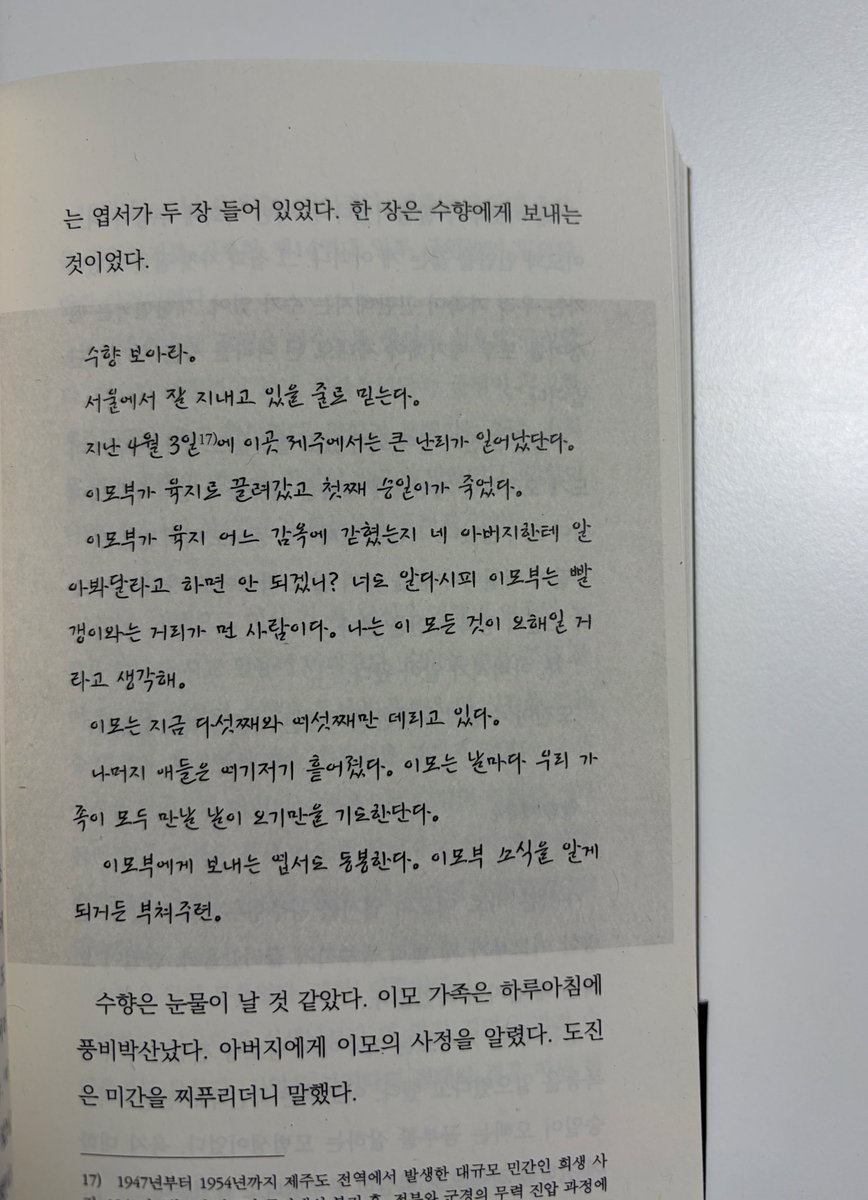 는 엽서가 두 장 들어 있었다. 한 장은 수향에게 보내는
것이었다.
수향 보아라.
서울에서 잘 지내고 있을 줄로 믿는다.
지난 4월 3일17)에 이곳 제주에서는 큰 난리가 일어났단다.
이모부가 육지로 끌려갔고 첫째 승일이가 죽었다.
이모부가 육지 어느 감옥에 갇혔는지 네 아버지한테 알
아봐달라고 하면 안 되겠니? 너도 알다시피 이모부는 빨
갱이와는 거리가 먼 사람이다. 나는 이 모든 것이 오해일 거
라고 생각해.
이모는 지금 다섯째와 여섯째만 데리고 있다.
나머지 애들은 여기저기 흩어졌다. 이모는 날마다 우리 가
족이 모두 만날 날이 오기만을 기도한단다.
이모부에게 보내는 엽서도 동봉한다. 이모부 소식을 알게
되거든 부쳐주련.
수향은 눈물이 날 것 같았다. 이모 가족은 하루아침에
풍비박산났다. 아버지에게 이모의 사정을 알렸다. 도진
은 미간을 찌푸리더니 말했다.
17) 1947년부터 1954년까지 제주도 전역에서 발생한 대규모 민간인 희생 사
무력 진압 과정에